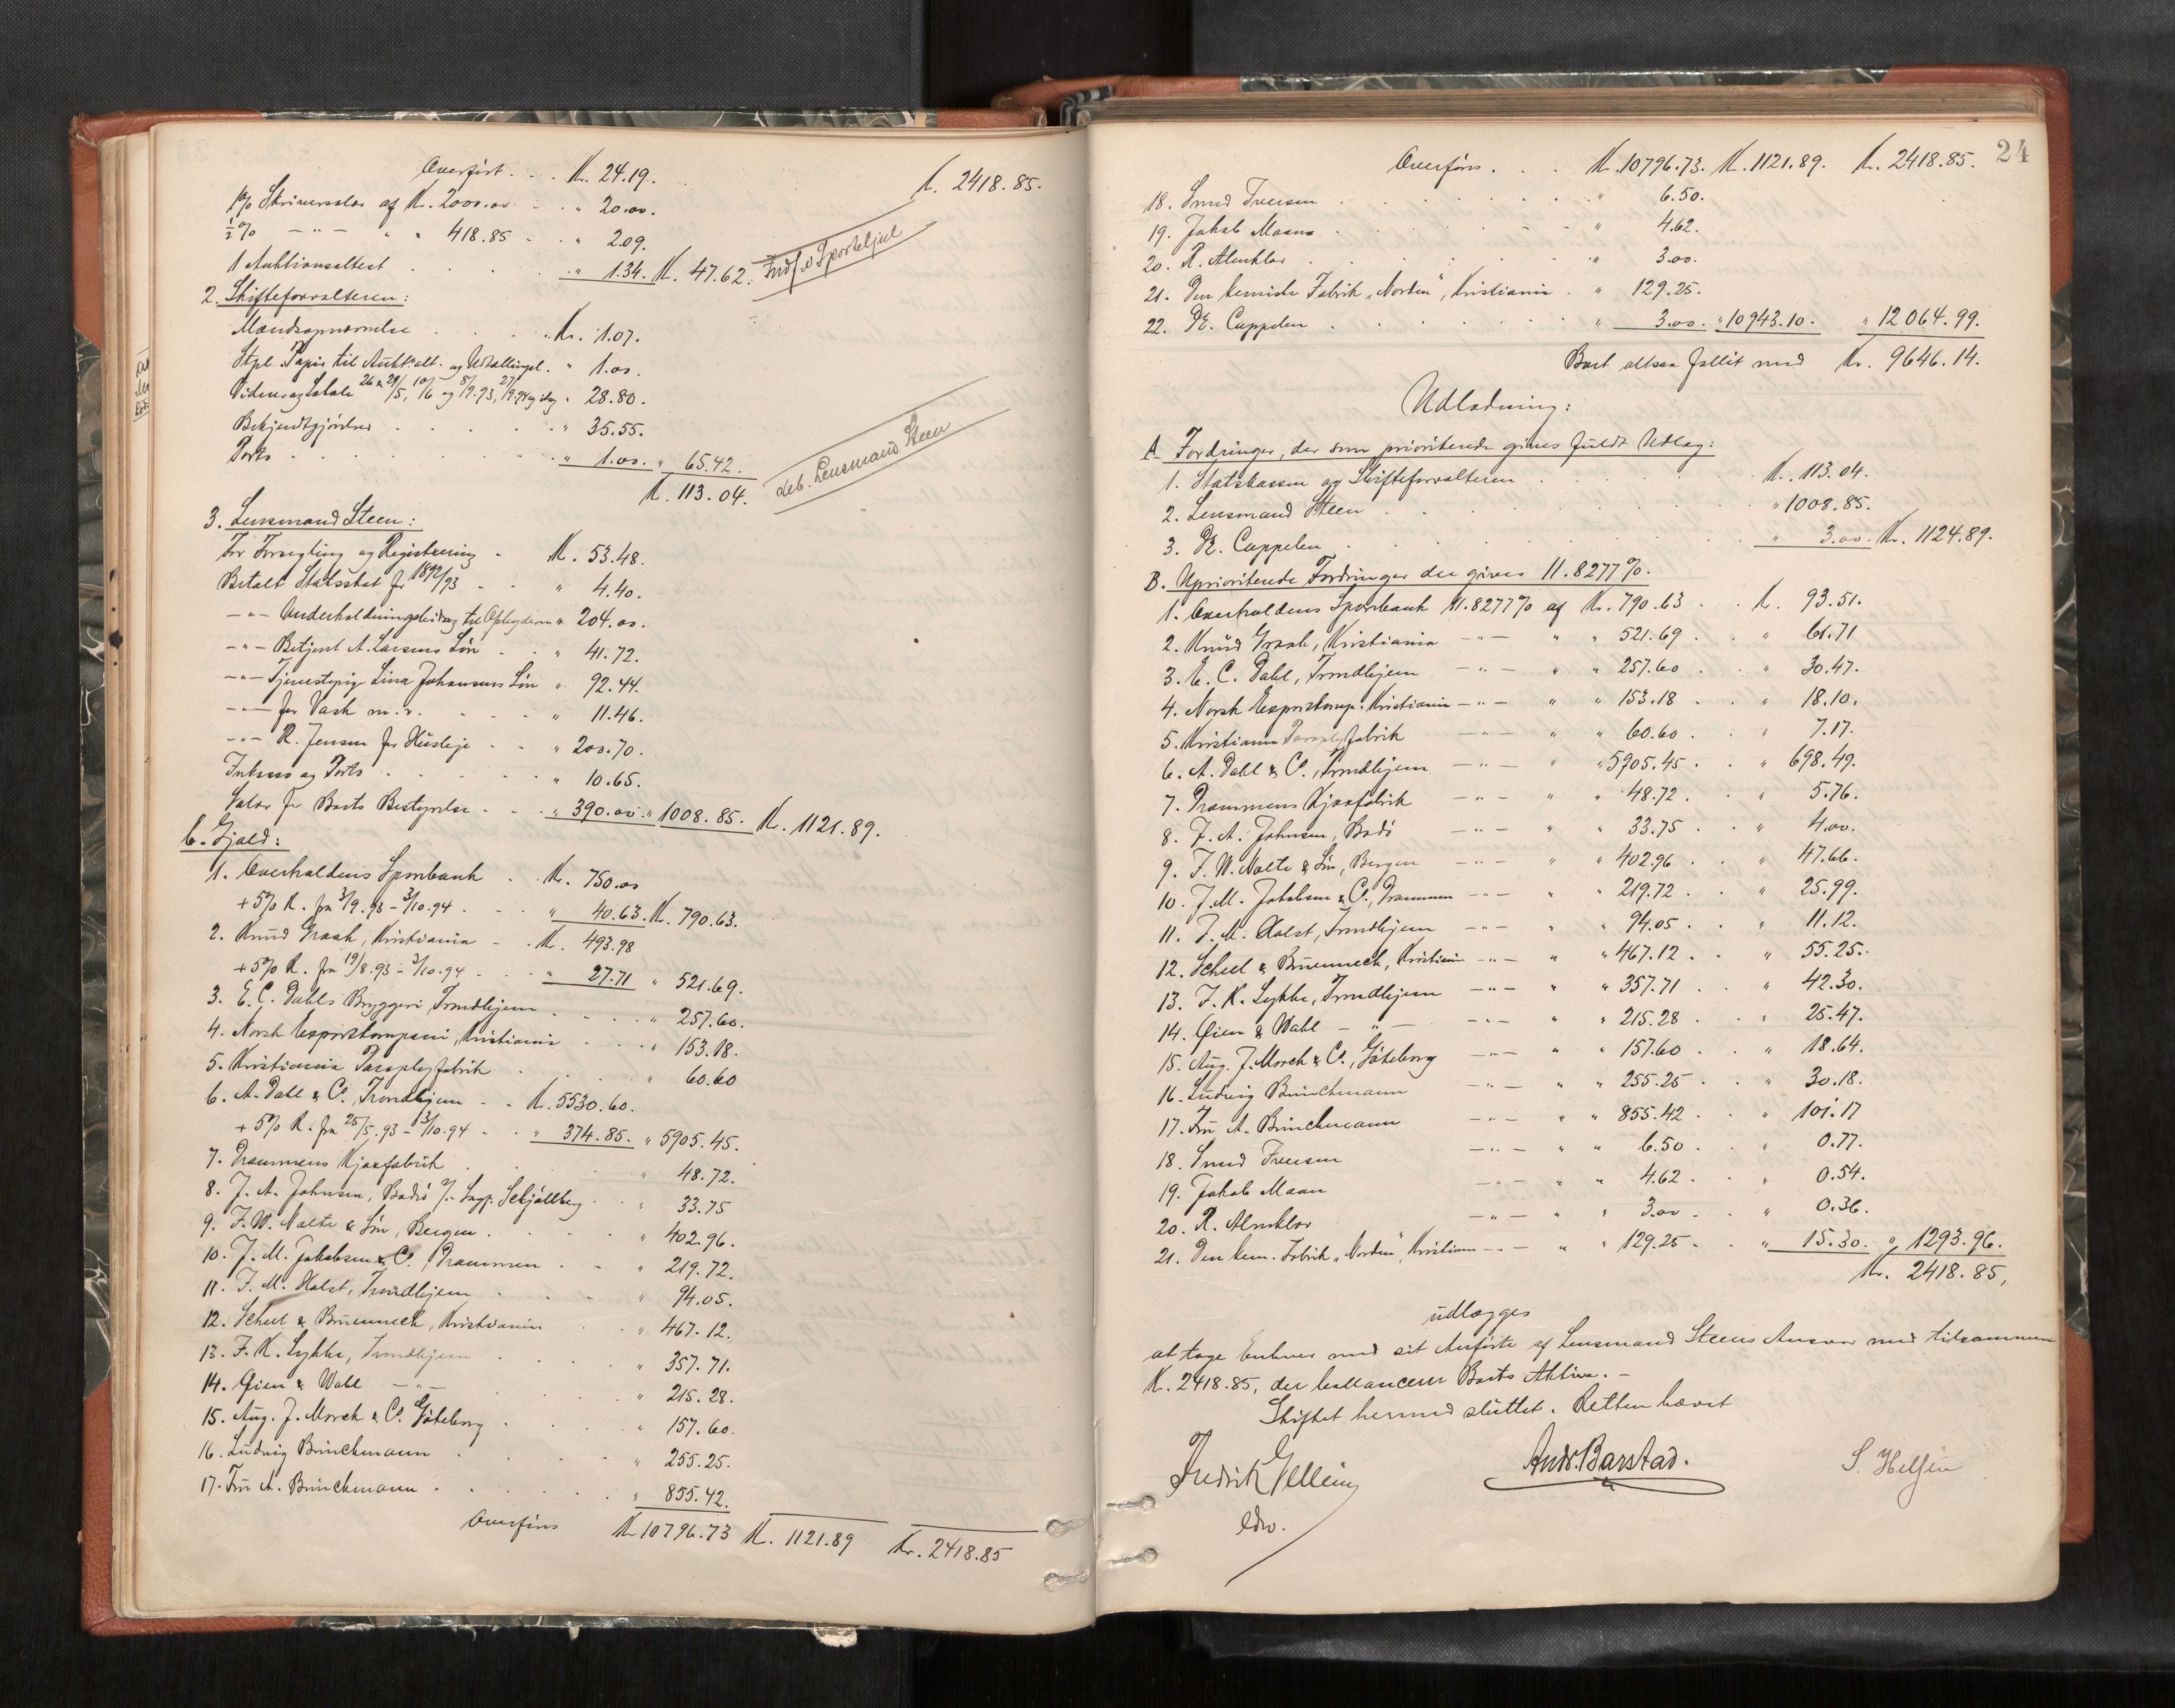 Overført . . . Kr. 24.19. K. 2418.85.
1% Skriversalær af Kr. 2000.00 . . " 20.00.
½% — " — " " 418.85 . . " 2.09.
1 Auktionsattest . . . . " 1.34. K. 47.62. Indf. i Sporteljnl
2. Skifteforvalteren:
Mændsopnævnelse . . . Kr. 1.07.
Stpl. Papir til Auktsatt. og Udtællingsl. " 1.00.
26 & 29/5, 10/6 og 8/9.93, 27/9.94 og idag . 28.80.
Bekjendtgjørelser . . . . " 35.55.
Porto . . . . . " 1.00. " 65.42.
K. 113.04.
deb. Lensmand Steen
3. Lensmand Steen:
For Forsegling og Registrering . K. 53.48.
Betalt Statsskat for 1892/93 . . " 4.40.
— " — Underholdningsbidrag til " 204.00.
— " — Betjent A. Larsens Løn . . " 41.72.
— " — Tjenestepige Lina Johansens Løn " 92.44.
— " — for Vask m.v. . . . " 11.46.
— " — R. Jensen for Husleje . . " 200.70.
Inkasso og Porto . . . . " 10.65.
Salær for Boets Bestyrelse . . . " 390.00 " 1008.85. K. 1121.89.
C. Gjæld:
1. Overhaldens Sparebank . . Kr. 750.00
+ 5% R. fra 3/9.93 – 3/10.94 . . " 40.63. Kr. 790.63.
2. Knud Graah, Kristiania . . K. 493.98
+ 5% R. fra 19/8.93 – 3/10.94 . . " 27.71 " 521.69.
3. E. C. Dahls Bryggeri, Trondhjem . . . . " 257.60.
4. Norsk Exportkompani, Kristiania . . . " 153.18.
5. Kristiania Paraplyfabrik . . . " 60.60
6. A. Dahl & Co., Trondhjem . . K. 5530.60.
+ 5% R. fra 25/5.93 – 3/10.94 . . " 374.85. " 5905.45.
7. Drammens Kjæxfabrik . . . " 48.72.
8. J. A. Johnsen, Bodø v/ Sagf. Schjøllberg . . " 33.75
9. F. W. Nolte & Søn, Bergen . . . . " 402.96.
10. J. M. Jakobsen & Co., Drammen . . . " 219.72.
11. F. M. Holst, Trondhjem . . . " 94.05.
12. Scheel & Brünnech, Kristiania . . . " 467.12.
13. F. K. Lykke, Trondhjem . . . . " 357.71.
14. Øien & Wahl — " — . . . " 215.28.
15. Aug. J. Morch & Co. Göteborg . . . " 157.60.
16. Ludvig Brinchmann . . . . " 255.25.
17. Fru A. Brinchmann . . . . " 855.42.
Overføres K. 10796.73 K. 1121.89 Kr. 2418.85
24
Overføres . . . Kr. 10796.73. K. 1121.89. K. 2418.85.
18. Smed Iversen . . . . " 6.50.
19. Jakob Moano . . . . " 4.62.
20. R. Almklov . . . . " 3.00.
21. Den kemiske Fabrik „Norden", Kristiania . " 129.25.
22. Cappelen . . . . " 3.00. " 10943.10. " 12064.99.
Boet altsaa fallit med Kr. 9646.14.
Udlodning:
A. Fordringer, der som prioriterede gives fuldt Udlæg:
1. Statskassen og Skifteforvalteren . . . K. 113.04.
2. Lensmand Steen . . . . " 1008.85.
3. Cappelen . . . . " 3.00. K. 1124.89.
B. Uprioriterede Fordringer der gives 11.8277%.
1. Overhaldens Sparebank 11.8277% af Kr. 790.63 . . K. 93.51.
2. Knud Graah, Kristiania — " — " " 521.69 . . " 61.71
3. E. C. Dahl, Trondhjem — " — " " 257.60 . . " 30.47.
4. Norsk Exportkomp. Kristiania — " — " " 153.18 . . " 18.10.
5. Kristiania Paraplyfabrik — " — " " 60.60 . . " 7.17.
6. A. Dahl & Co., Trondhjem — " — " " 5905.45 . . " 698.49.
7. Drammens Kjæxfabrik — " — " " 48.72 . . " 5.76.
8. J. A. Johnsen, Bodø — " — " " 33.75 . . " 4.00.
9. F. W. Nolte & Søn, Bergen — " — " " 402.96 . . " 47.66.
10. J. M. Jakobsen & Co., Drammen — " — " " 219.72 . . " 25.99.
11. F. M. Holst, Trondhjem — " — " " 94.05 . . " 11.12.
12. Scheel & Brünnech, Kristiania — " — " " 467.12 . . " 55.25.
13. F. K. Lykke, Trondhjem — " — " " 357.71 . . " 42.30.
14. Øien & Wahl — " — — " — " " 215.28 . . " 25.47.
15. Aug. J. Morch & Co., Göteborg — " — " " 157.60 . . " 18.64.
16. Ludvig Brinchmann — " — " " 255.25 . . " 30.18.
17. Fru A. Brinchmann — " — " " 855.42 . . " 101.17
18. Smed Iversen — " — " " 6.50 . . " 0.77.
19. Jakob Moan — " — " " 4.62 . . " 0.54.
20. R. Almklov — " — " " 3.00 . . " 0.36.
21. Den kem. Fabrik „Norden", Kristiania — " — " " 129.25 . . " 15.30. " 1293.96.
Kr. 2418.85,
udlægges
at tage Enhver med sit Anførte af Lensmand Steens Ansvar med tilsammen
K. 2418.85, der ballancerer Boets Aktiva. –
Skiftet hermed sluttet. Retten hævet
Fredrik Gellein Andr. Barstad. S. Helsjin
edsv.